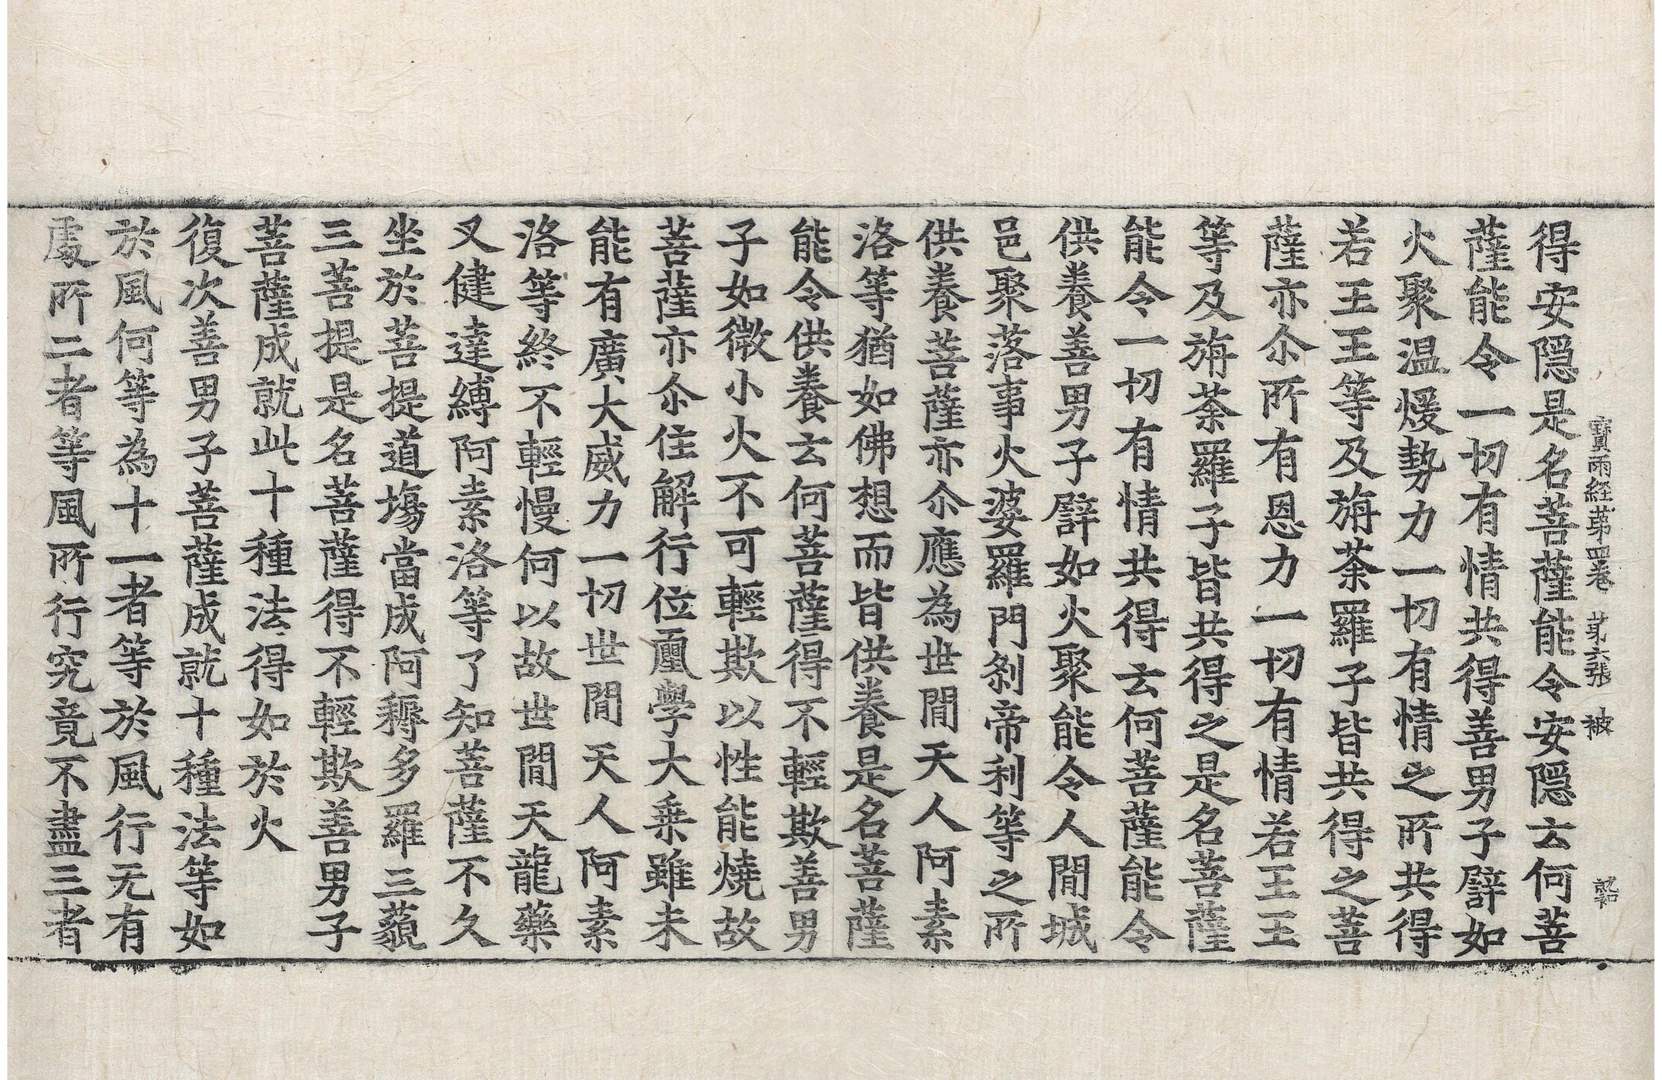 寶雨経苐四卷 苐六張 被
得安隱是名菩薩能令安隱云何菩
薩能令一切有情共得善男子譬如
火聚温煖勢力一切有情之所共得
若王王等及旃荼羅子皆共得之菩
薩亦尒所有恩力一切有情若王王
等及旃荼羅子皆共得之是名菩薩
能令一切有情共得云何菩薩能令
供養善男子譬如火聚能令人間城
邑聚落事火婆羅門剎帝利等之所
供養菩薩亦尒應為世間天人阿素
洛等猶如佛想而皆供養是名菩薩
能令供養云何菩薩得不輕欺善男
子如微小火不可輕欺以性能燒故
菩薩亦尒住解行位學大乘雖未
能有廣大威力一切世間天人阿素
洛等終不輕慢何以故世間天龍藥
叉健達縛阿素洛等了知菩薩不久
坐於菩提道場當成阿耨多羅三藐
三菩提是名菩薩得不輕欺善男子
菩薩成就此十種法得如於火
復次善男子菩薩成就十種法等如
於風何等為十一者等於風行无有
處所二者等風所行究竟不盡三者